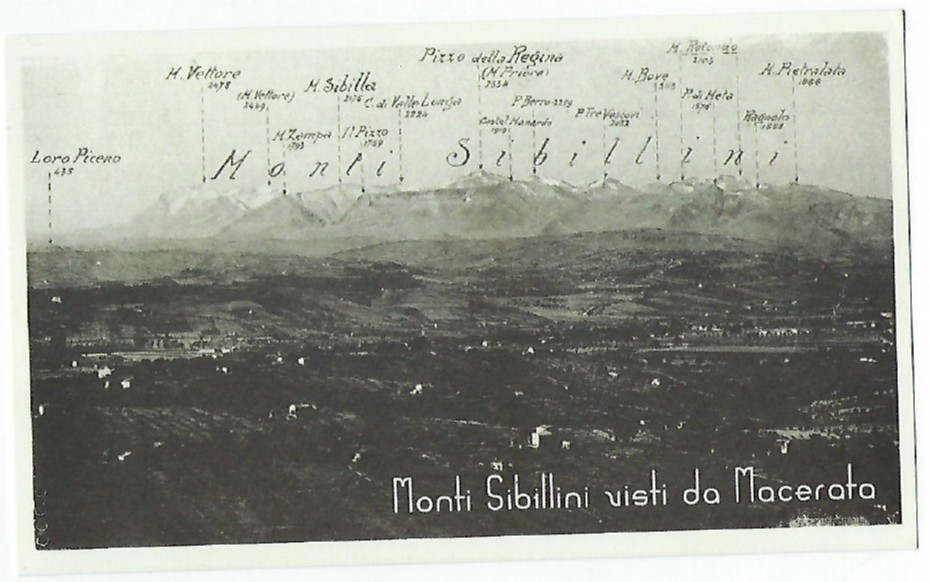 M. Vettore
2478
(M. Vettore)
2449
M. Sibilla
2176
Pizzo della Regina
(M. Priore)
2334
M. Bove
2113
M. Rotondo
2103
M. Pietralata
1888
C. di Valle Lunga
2224
P. Berro 2259
P. di Meta
1576
Loro Piceno
435
M. Zampa
1793
Il Pizzo
1769
Castel Manardo
1919
P. Tre Vescovi
2092
Ragnolo
Monti Sibillini
Monti Sibillini visti da Macerata